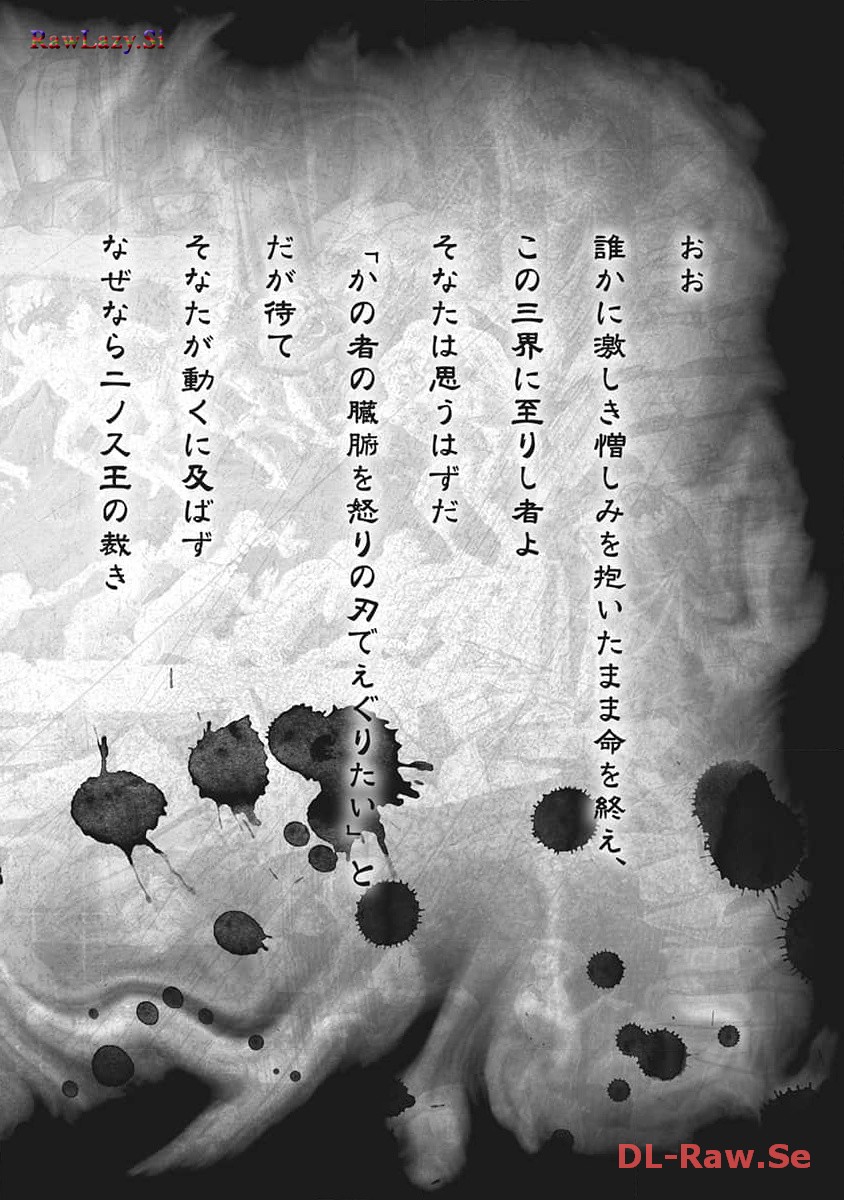 RawLazy.Si
おお
誰かに激しき憎しみを抱いたまま命を終え、
この三界に至りし者よ
そなたは思うはずだ
「かの者の臓腑を怒りの刃でえぐりたい」と
だが待て
そなたが動くに及ばず
なぜならニノス王の裁き
DL-Raw.Se